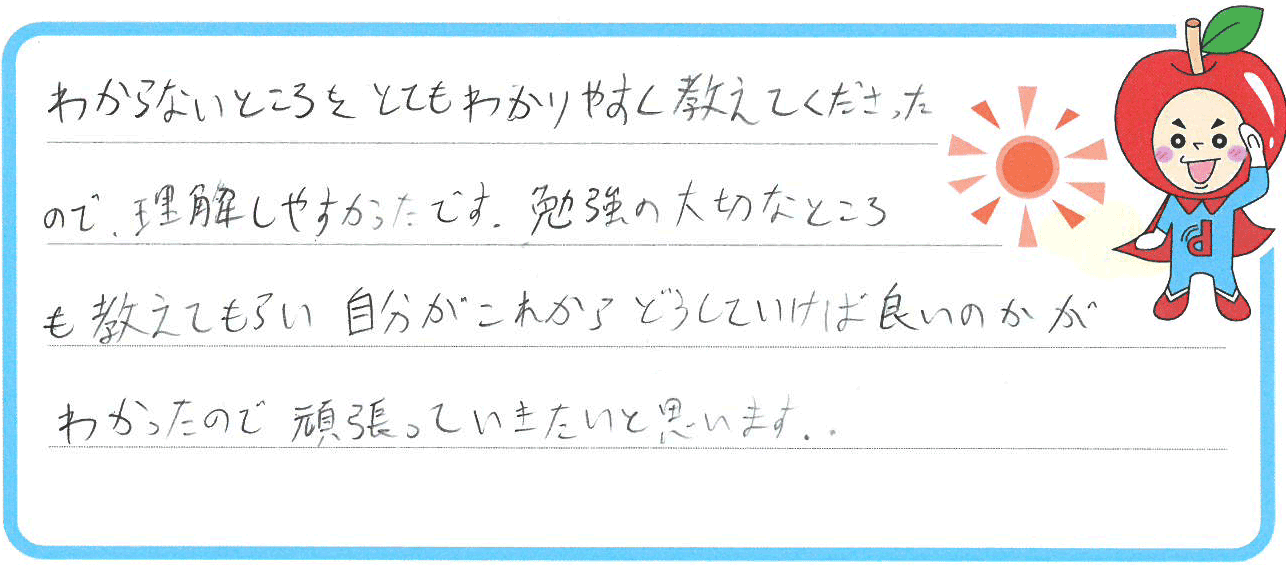 わからないところを とてもわかりやすく教えてくださった
ので、理解しやすかったです. 勉強の大切なところ
も教えてもらい 自分がこれからどうしていけば良いのかが
わかったので 頑張っていきたいと思います..
d